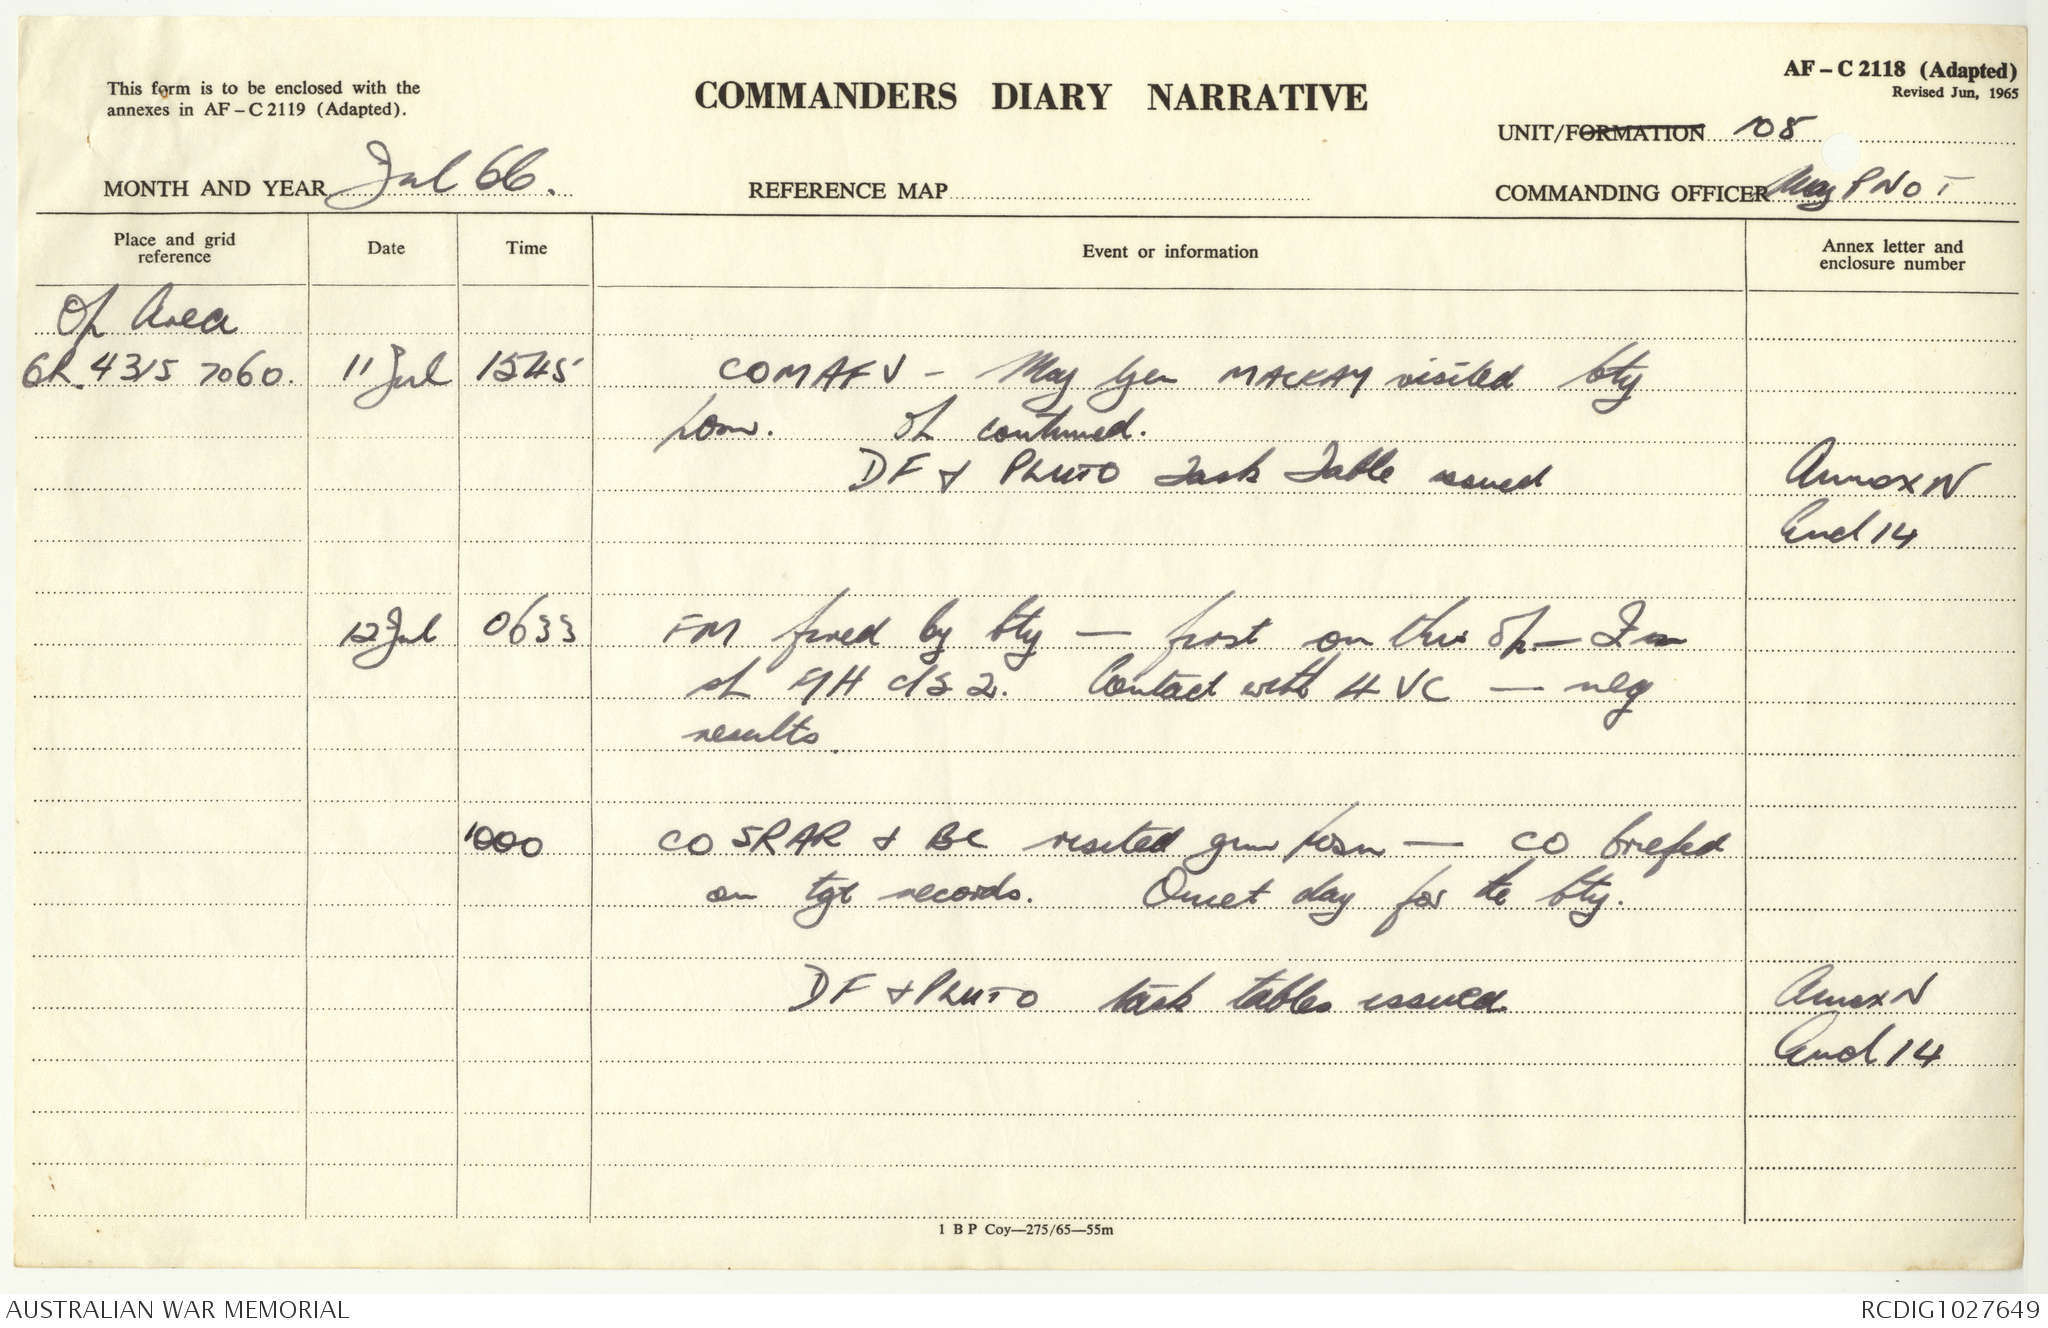 This form is to be enclosed with the
annexes in AF – C 2119 (Adapted).
COMMANDERS DIARY NARRATIVE
AF – C 2118 (Adapted)
Revised Jun, 1965
UNIT/FORMATION 108
MONTH AND YEAR Jul 66.
REFERENCE MAP
COMMANDING OFFICER Maj P N O T
Place and grid
reference
Date
Time
Event or information
Annex letter and
enclosure number
Op Area
GR. 4315 7060. 11 Jul 1545 COMAFV - Maj Gen MACKAY visited bty
posn. Op continued.
DF & PLUTO Task Table issued Annex N
Encl 14
12 Jul 0633 FM fired by bty — first on this op —
Contact with 4 VC — neg
results.
1000 CO 5RAR & BC visited gun posn — CO briefed
on tgt records. Quiet day for the bty.
DF & PLUTO task tables issued Annex N
Encl 14
1 B P Coy—275/65—55m
AUSTRALIAN WAR MEMORIAL
RCDIG1027649